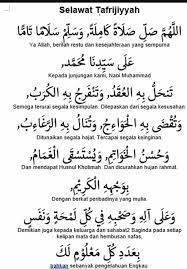 Selawat Tafrijiyyah
اللّٰهُمَّ صَلِّ صَلَاةً كَامِلَةً, وَسَلِّمْ سَلَامًا تَامًّا
Ya Allah, berilah restu dan kesejahteraan yang sempurna
عَلَى سَيِّدِنَا مُحَمَّدٍ,
Kepada junjungan kami, Nabi Muhammad
تَنْحَلُّ بِهِ الْعُقَدُ, وَتَنْفَرِجُ بِهِ الْكُرَبُ,
Semoga terurai segala kesimpulan. Dilepaskan dari segala kesusahan.
وَتُقْضَى بِهِ الْحَوَائِجُ, وَتُنَالُ بِهِ الرَّغَائِبُ,
Ditunaikan segala hajat. Tercapai segala keinginan.
وَحُسْنُ الْخَوَاتِيْمِ, وَيُسْتَسْقَى الْغَمَامُ,
Dan mendapat Husnul Khotimah. Dan dicurahkan hujan rahmat.
بِوَجْهِهِ الْكَرِيْمِ,
Dengan berkat peribadinya yang mulia
وَعَلَى آلِهِ وَصَحْبِهِ فِي كُلِّ لَمْحَةٍ وَنَفَسٍ
Demikian juga kepada keluarga dan sahabat2 Baginda pada setiap
kelipan mata dan hembusan nafas,
بِعَدَدِ كُلِّ مَعْلُوْمٍ لَكَ
bahkan sebanyak pengetahuan Engkau